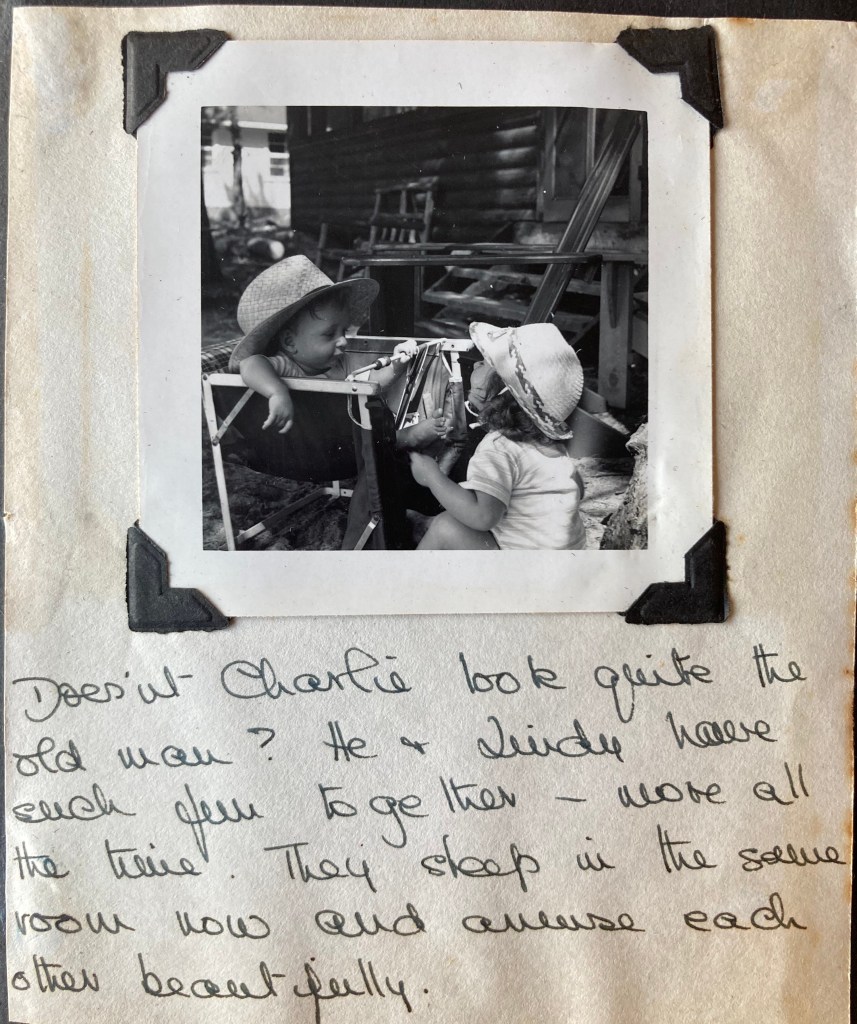 Does'nt Charlie look quite the
old man? He + Lindy have
such fun together – more all
the time. They sleep in the same
room now and amuse each
other beautifully.